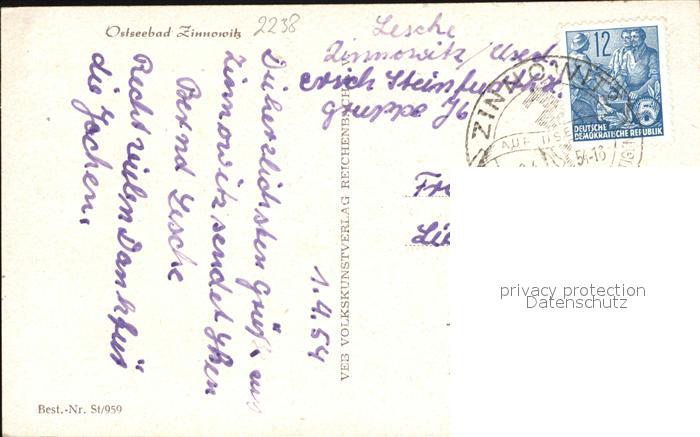 Ostseebad Zinnowitz
2238
Lesche
Zinnowitz / Used.
Erich Steinfurth
Gruppe J6
12
5
DEUTSCHE
DEMOKRATISCHE REPUBLIK
ZINNOWITZ
AUF USE
54-18
Fr
Lie
Die herzlichsten Grüße aus
Zinnowitz sendet Ihnen
Bernd Lesche
Recht vielen Dank für
die Sachen.
1.4.54
VEB VOLKSKUNSTVERLAG REICHENBACH
privacy protection
Datenschutz
Best.-Nr. St/959